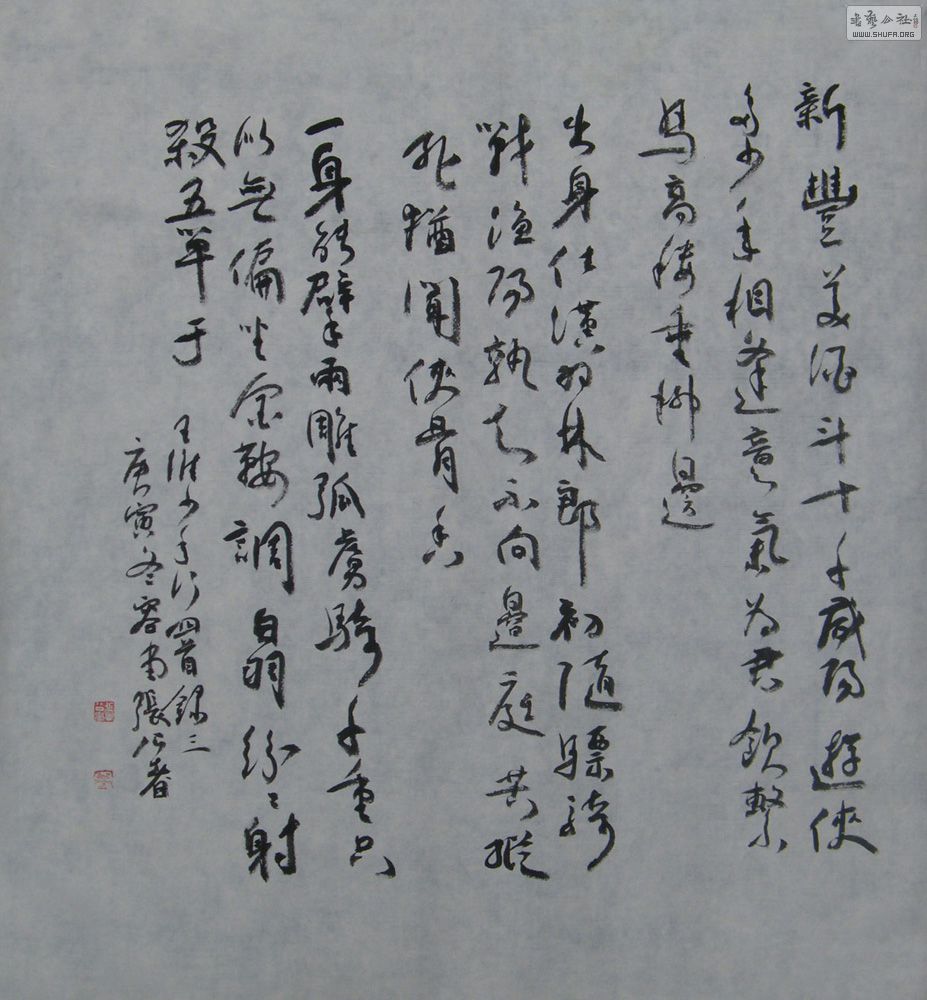 新豐美酒斗十千咸陽遊俠
多少年相逢意氣為君飲繫
馬高樓垂柳邊
出身仕漢羽林郎初隨驃騎
戰漁陽孰知不向邊庭苦縱
死猶聞俠骨香
一身能擘兩雕弧虜騎千重只
似無偏坐金鞍調白羽紛〻射
殺五單于
王維少年行四首錄三
庚寅冬容堂張公者
書藝公社
WWW.SHUFA.ORG